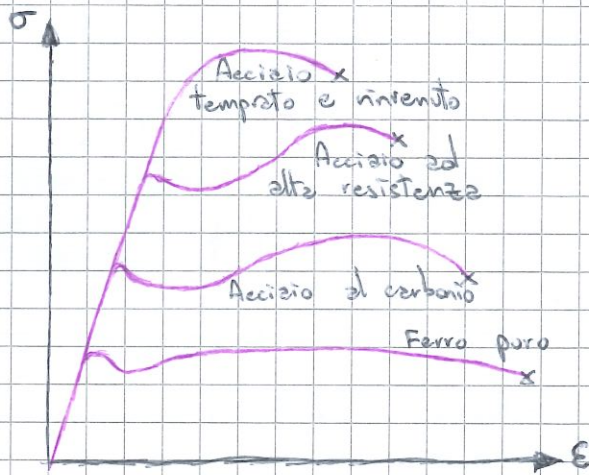 σ
Acciaio
temprato e rinvenuto
Acciaio ad
alta resistenza
Acciaio al carbonio
Ferro puro
ε